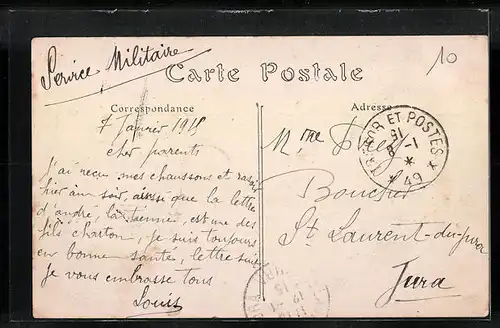 Service Militaire
10
Carte Postale
Correspondance
Adresse
7 Janvier 1915
cher parents
J'ai reçu mes chaussons et rasoir
hier au soir, ainsi que la lettre
d'andré, la tienne, est une des
fils charton, je suis toujours
en bonne santé, lettre suit
je vous embrasse tous
Louis
TRESOR ET POSTES
* 49 *
Mme
Boucher
St Laurent-du-jura
Jura